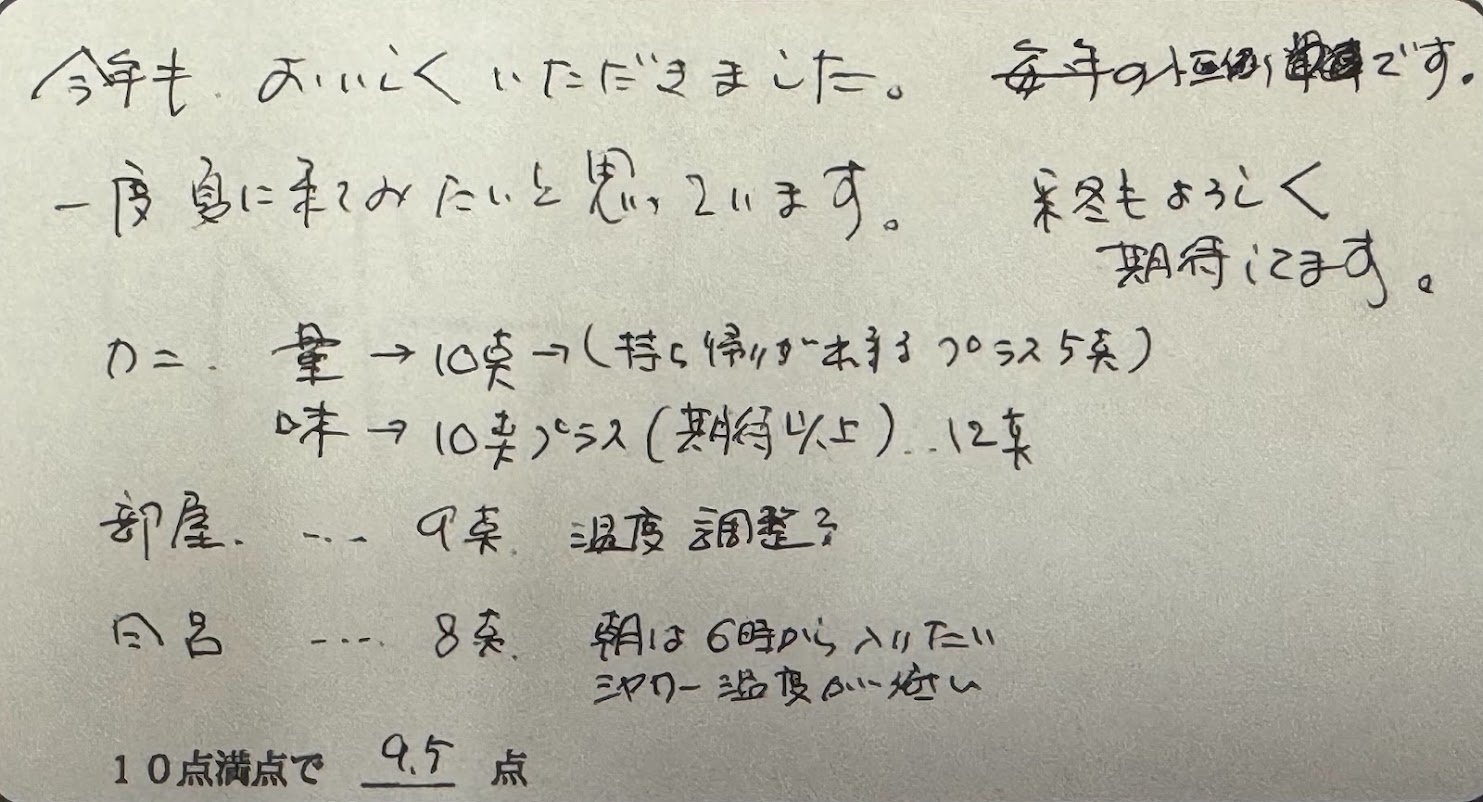 今年も おいしくいただきました。 毎年の恒例です。
一度夏に来てみたいと思っています。 来冬もよろしく
期待してます。
カニ. 量→10点→(持ち帰りが出来るプラス5点)
味→10点プラス(期待以上)...12点
部屋. .... 9点. 温度調整?
風呂 .... 8点. 朝は6時から入りたい
シャワー温度が低い
10点満点で 9.5 点